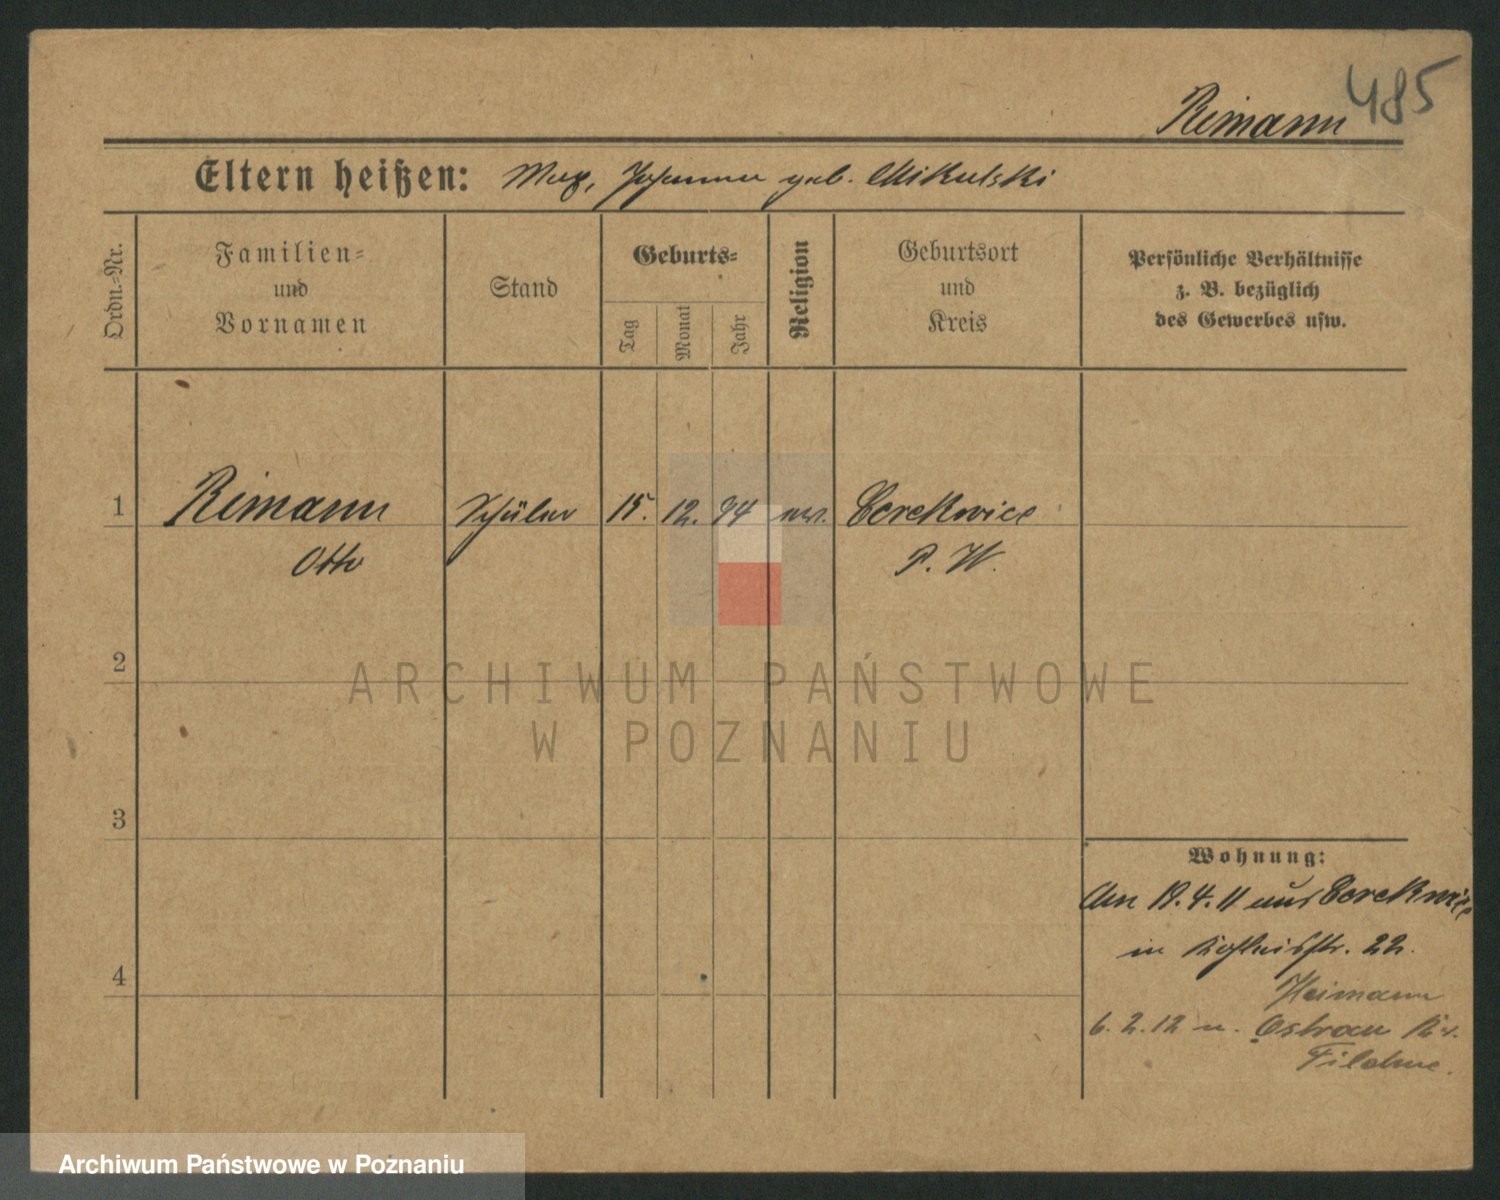 485
Reimann
Eltern heißen: Max, Johanna geb. Mikulski
Ordn.-Nr.
Familien-
und
Vornamen
Stand
Geburts-
Tag
Monat
Jahr
Religion
Geburtsort
und
Kreis
Persönliche Verhältnisse
z. B. bezüglich
des Gewerbes usw.
1 Reimann Schüler 15. 12. 94 ev. Cerekwice
Otto P. W.
2
3
4
Wohnung:
Am 19.4.11 aus Cerekwice
in 22.
Heimann
6.2.12 n. Ostrau Kr.
Filehne.
ARCHIWUM PAŃSTWOWE
W POZNANIU
Archiwum Państwowe w Poznaniu